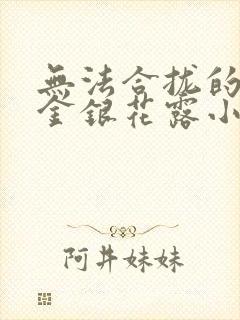 無法合拢的
金銀花露小
阿井妹妹